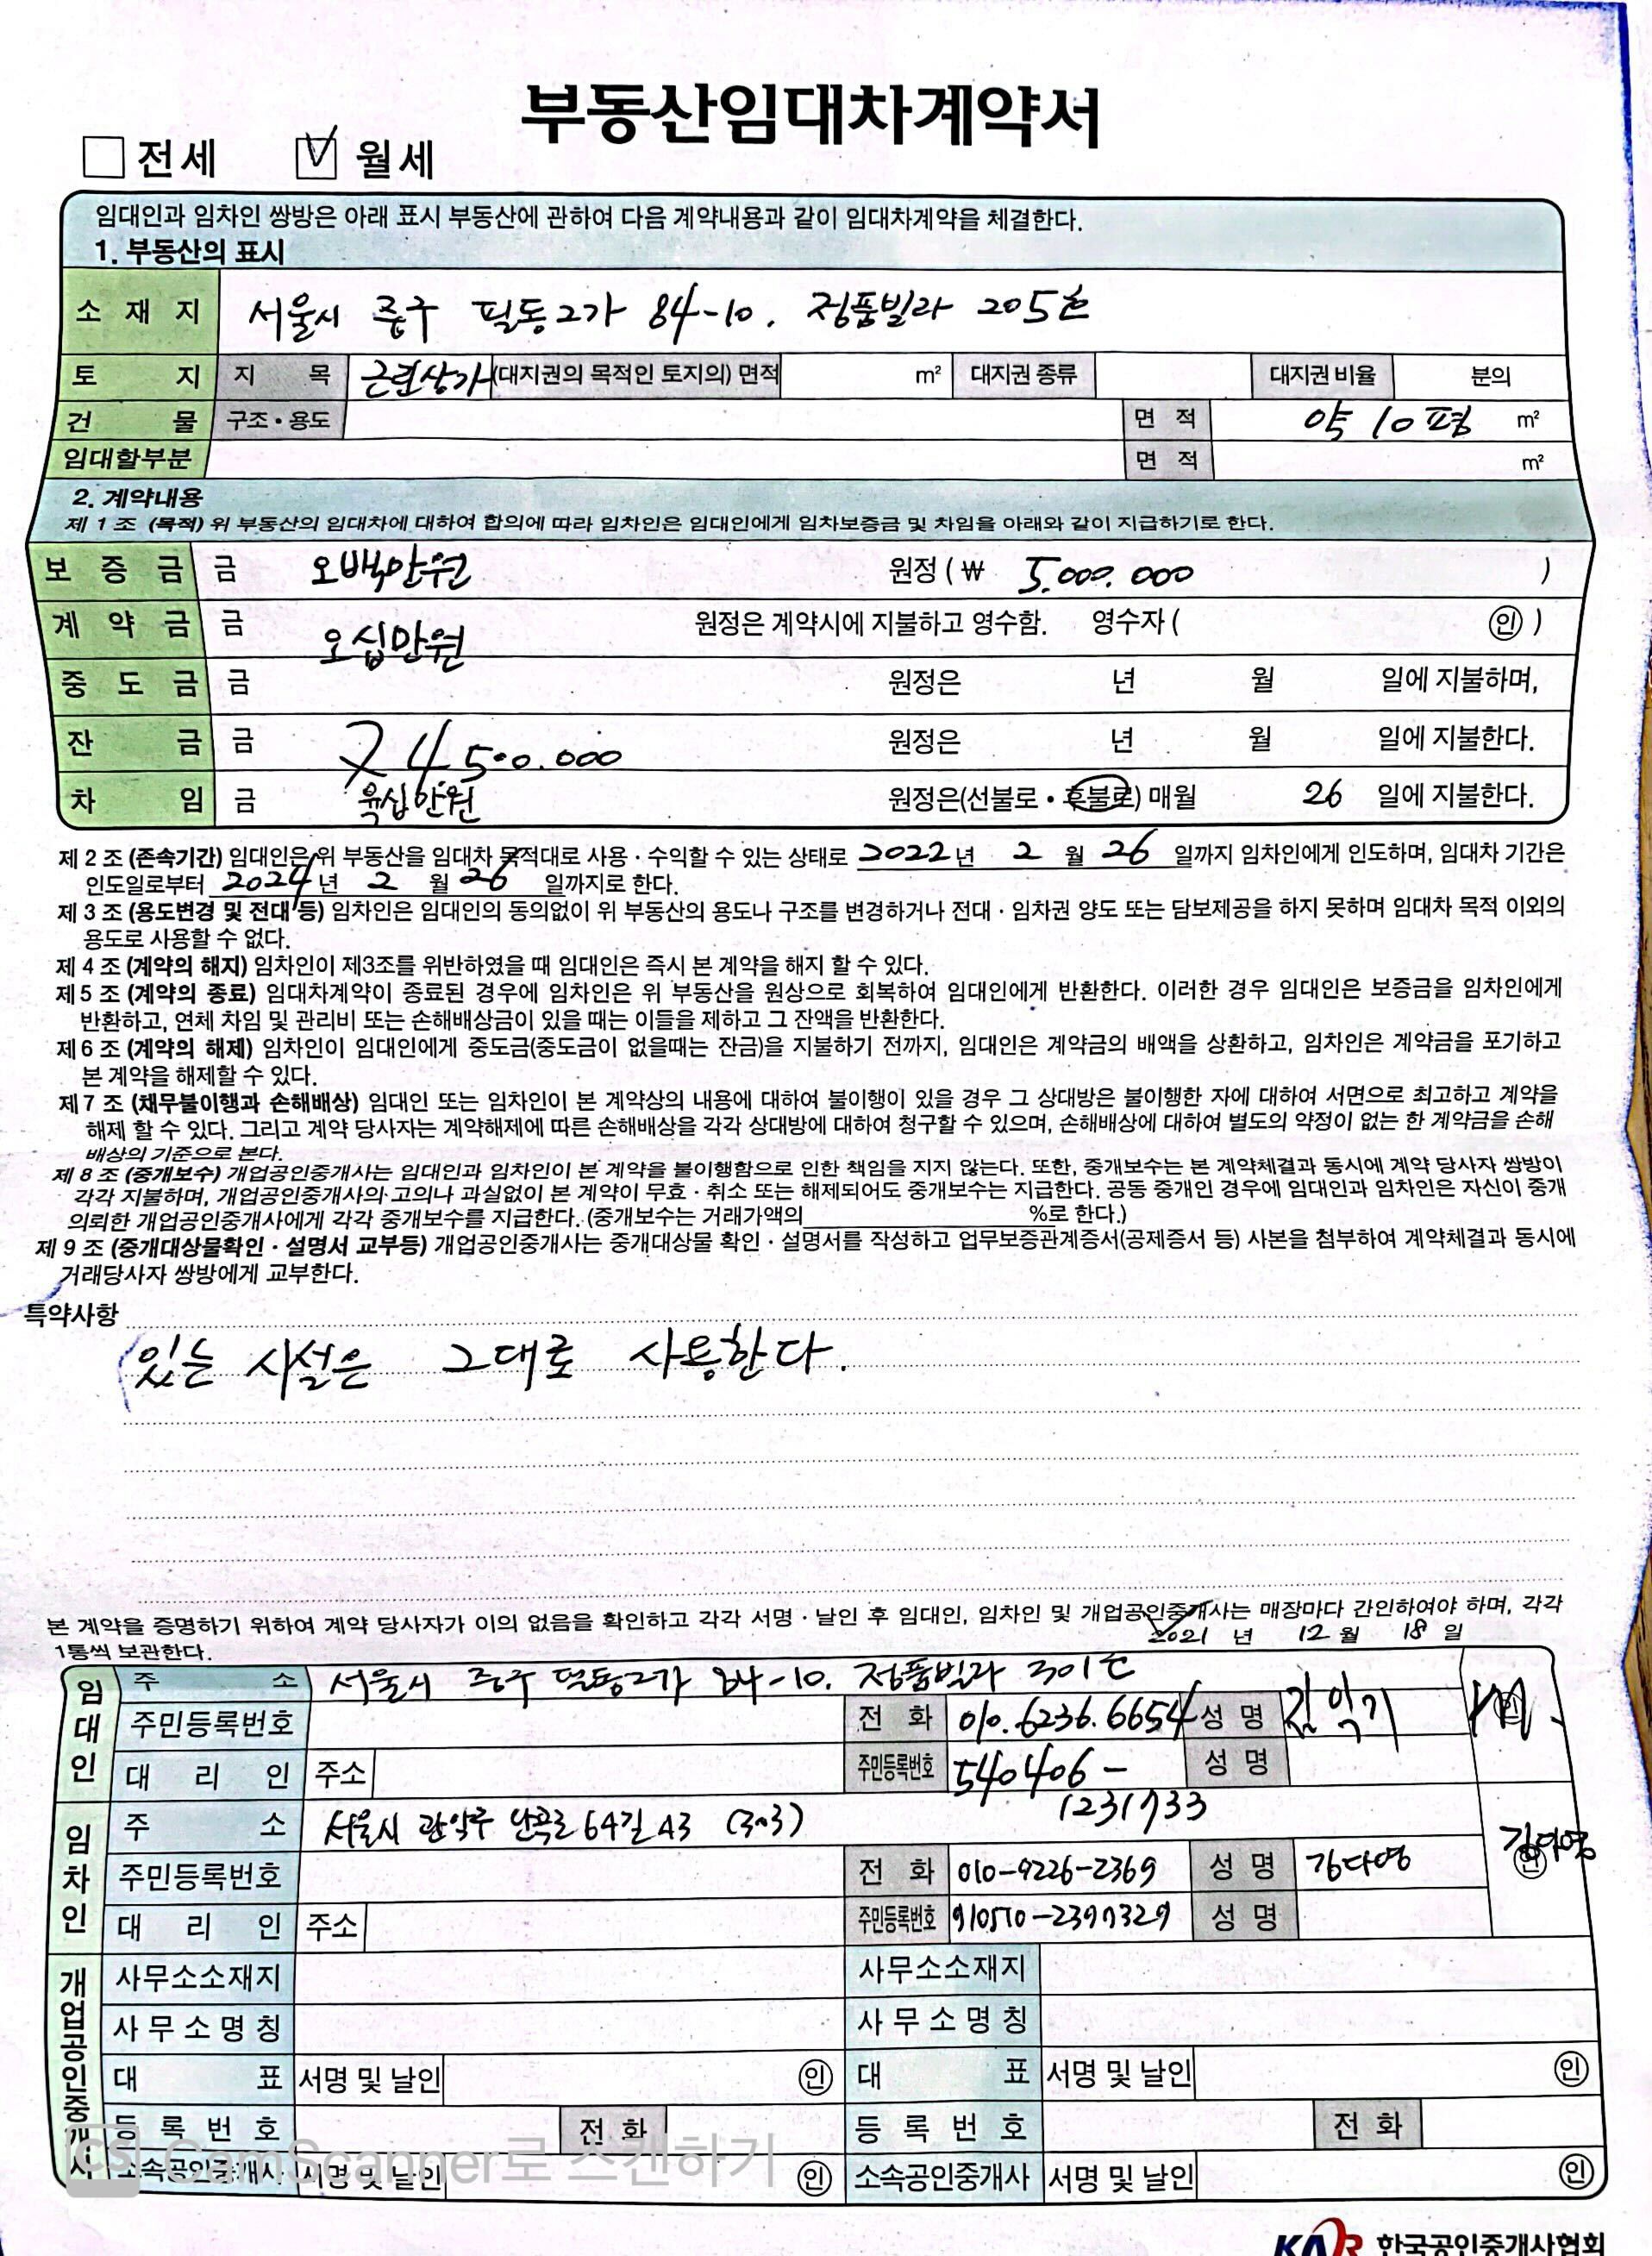 부동산임대차계약서
전세 월세
임대인과 임차인 쌍방은 아래 표시 부동산에 관하여 다음 계약내용과 같이 임대차계약을 체결한다.
1. 부동산의 표시
소재지 서울시 중구 필동2가 84-10. 정품빌라 205호
토지 지목 근린상가 (대지권의 목적인 토지의) 면적 m² 대지권 종류 대지권 비율 분의
건물 구조·용도 면적 약 10평 m²
임대할부분 면적 m²
2. 계약내용
제 1 조 (목적) 위 부동산의 임대차에 대하여 합의에 따라 임차인은 임대인에게 임차보증금 및 차임을 아래와 같이 지급하기로 한다.
보증금 금 오백만원 원정 (₩ 5.000.000 )
계약금 금 오십만원 원정은 계약시에 지불하고 영수함. 영수자 ( 인 )
중도금 금 원정은 년 월 일에 지불하며,
잔금 금 4500.000 원정은 년 월 일에 지불한다.
차임 금 육십만원 원정은(선불로·후불로) 매월 26 일에 지불한다.
제 2 조 (존속기간) 임대인은 위 부동산을 임대차 목적대로 사용·수익할 수 있는 상태로 2022년 2 월 26 일까지 임차인에게 인도하며, 임대차 기간은
인도일로부터 2024년 2 월 26 일까지로 한다.
제 3 조 (용도변경 및 전대 등) 임차인은 임대인의 동의없이 위 부동산의 용도나 구조를 변경하거나 전대·임차권 양도 또는 담보제공을 하지 못하며 임대차 목적 이외의
용도로 사용할 수 없다.
제 4 조 (계약의 해지) 임차인이 제3조를 위반하였을 때 임대인은 즉시 본 계약을 해지 할 수 있다.
제 5 조 (계약의 종료) 임대차계약이 종료된 경우에 임차인은 위 부동산을 원상으로 회복하여 임대인에게 반환한다. 이러한 경우 임대인은 보증금을 임차인에게
반환하고, 연체 차임 및 관리비 또는 손해배상금이 있을 때는 이들을 제하고 그 잔액을 반환한다.
제 6 조 (계약의 해제) 임차인이 임대인에게 중도금(중도금이 없을때는 잔금)을 지불하기 전까지, 임대인은 계약금의 배액을 상환하고, 임차인은 계약금을 포기하고
본 계약을 해제할 수 있다.
제 7 조 (채무불이행과 손해배상) 임대인 또는 임차인이 본 계약상의 내용에 대하여 불이행이 있을 경우 그 상대방은 불이행한 자에 대하여 서면으로 최고하고 계약을
해제 할 수 있다. 그리고 계약 당사자는 계약해제에 따른 손해배상을 각각 상대방에 대하여 청구할 수 있으며, 손해배상에 대하여 별도의 약정이 없는 한 계약금을 손해
배상의 기준으로 본다.
제 8 조 (중개보수) 개업공인중개사는 임대인과 임차인이 본 계약을 불이행함으로 인한 책임을 지지 않는다. 또한, 중개보수는 본 계약체결과 동시에 계약 당사자 쌍방이
각각 지불하며, 개업공인중개사의 고의나 과실없이 본 계약이 무효·취소 또는 해제되어도 중개보수는 지급한다. 공동 중개인 경우에 임대인과 임차인은 자신이 중개
의뢰한 개업공인중개사에게 각각 중개보수를 지급한다. (중개보수는 거래가액의 %로 한다.)
제 9 조 (중개대상물확인·설명서 교부등) 개업공인중개사는 중개대상물 확인·설명서를 작성하고 업무보증관계증서(공제증서 등) 사본을 첨부하여 계약체결과 동시에
거래당사자 쌍방에게 교부한다.
특약사항
있는 시설은 그대로 사용한다.
본 계약을 증명하기 위하여 계약 당사자가 이의 없음을 확인하고 각각 서명·날인 후 임대인, 임차인 및 개업공인중개사는 매장마다 간인하여야 하며, 각각
1통씩 보관한다. 2021 년 12 월 18 일
임대인 주소 서울시 중구 필동2가 84-10. 정품빌라 301호
주민등록번호 전화 010.6236.6654 성명 김익기 인
대리인 주소 주민등록번호 540406- 성명
1231733
임차인 주소 서울시 관악구 난곡로64길 43 (303)
주민등록번호 전화 010-9226-2369 성명 김다영 김다영 인
대리인 주소 주민등록번호 910510-2397329 성명
개업공인중개사 사무소소재지 사무소소재지
사무소명칭 사무소명칭
대표 서명 및 날인 인 대표 서명 및 날인 인
등록번호 전화 등록번호 전화
소속공인중개사 서명 및 날인 인 소속공인중개사 서명 및 날인 인
CS CamScanner로 스캔하기
KAR 한국공인중개사협회